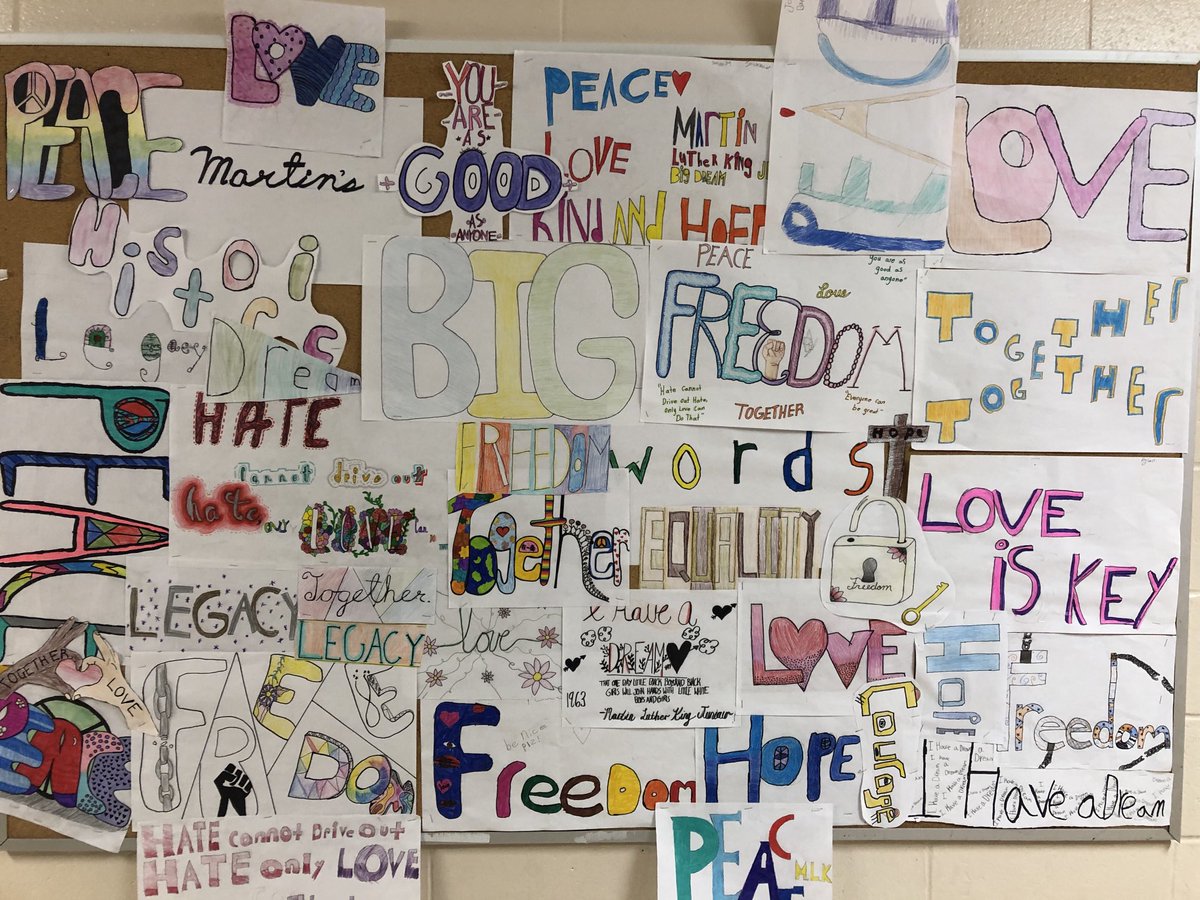 PEACE
LOVE
Martin's
YOU
ARE
AS
GOOD
AS
ANYONE
PEACE
LOVE
KIND AND HOPE
MARTIN
LUTHER KING J
BIG DREAM
PEACE
LOVE
Historical
Legacy
Dream
BIG
PEACE
Love
You are as
good as
anyone"
FREEDOM
"Hate Cannot
Drive out Hate,
only Love Can
Do That"
TOGETHER
Everyone can
be great
TOGETHER
TOGETHER
PEACE
HATE
Cannot drive out
hate, only
love
FREEDOM
words
HOPE
Together
EQUALITY
Freedom
LOVE
IS KEY
LEGACY
Together.
LEGACY
love
I Have a
DREAM
THAT ONE DAY LITTLE BLACK BOYS AND BLACK
GIRLS WILL JOIN HANDS WITH LITTLE WHITE
BOYS AND GIRLS
1963
-Martin Luther King Junior
LOVE
Courage
HOPE
Freedom
TOGETHER
LOVE
PEACE
FREEDOM
Freedom
be nice
plz!
HOPE
I Have a Dream
HATE cannot Drive out
HATE only LOVE
PEACE
MLK